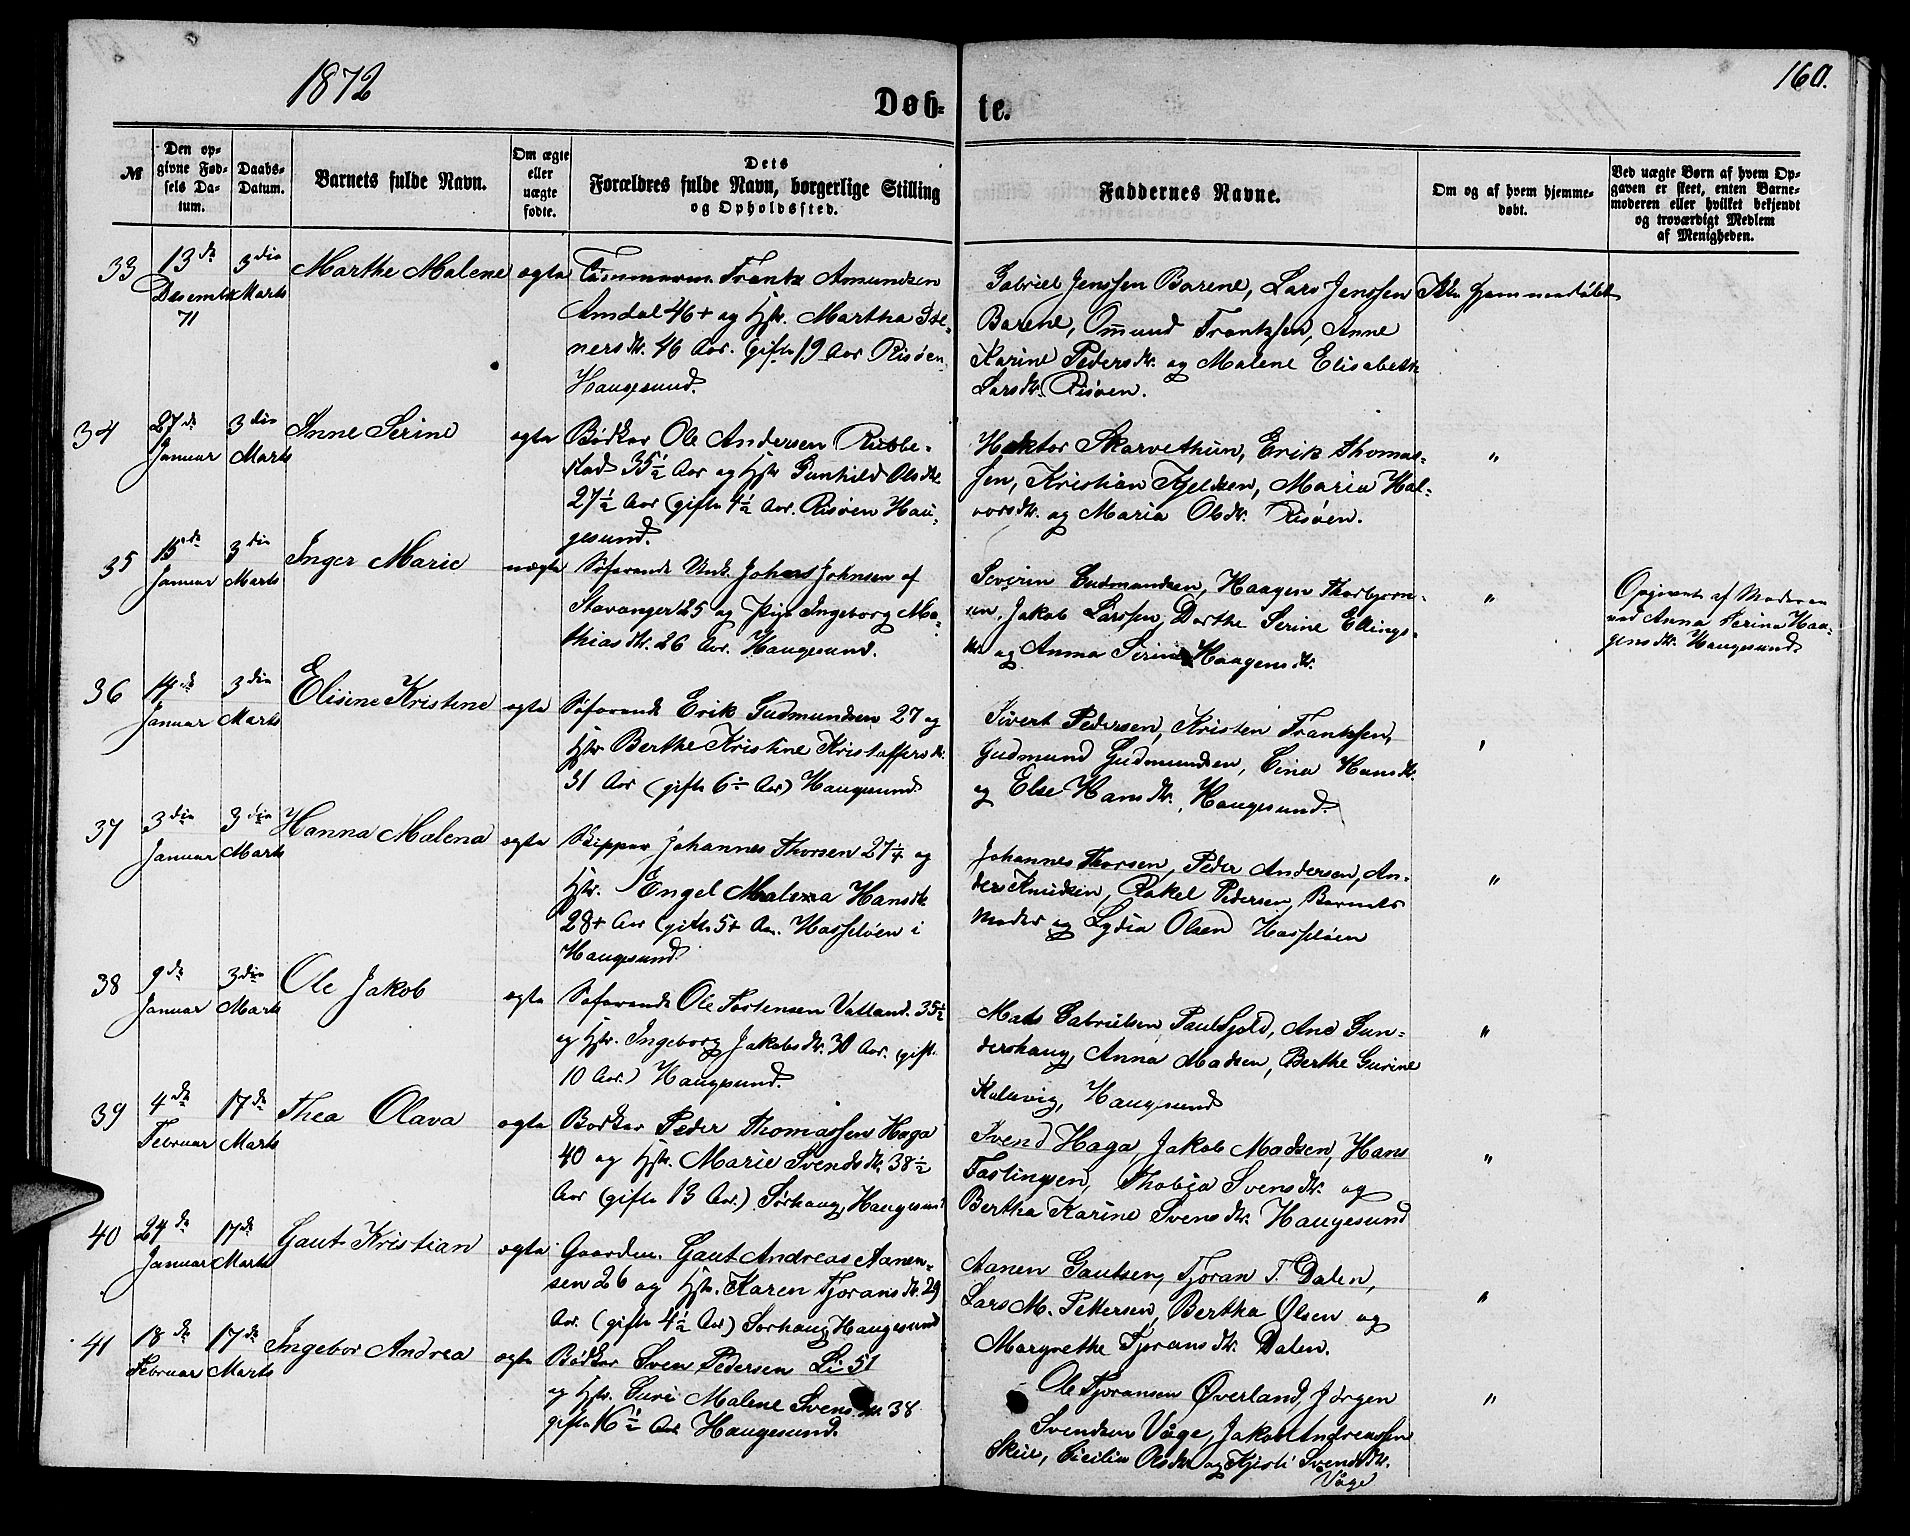 1872
Døb- te.
160.
№
Den op-
givne Fød-
sels Da-
tum.
Daabs-
Datum.
Barnets fulde Navn.
Om ægte
eller
uægte
fødte.
Dets
Forældres fulde Navn, borgerlige Stilling
og Opholdssted.
Faddernes Navne.
Om og af hvem hjemme-
døbt.
Ved uægte Børn af hvem Op-
gaven er skeet, enten Barne-
moderen eller hvilket bekjendt
og troværdigt Medlem
af Menigheden.
33
13de
Desember
71
3die
Marts
Marthe Malene
ægte
Tømmerm. Frantz Amundsen
Amdal 46+ og Hstr. Martha
nersdtr. 46 Aar. (gifte 19 Aar Risøen
Haugesund.
Gabriel Jenssen Barene, Lars Jenssen
Barene, Omund Frantzsen, Anne
Karine Pedersdtr. og Malene Elisabeth
Larsdtr. Risøen.
Ikke hjemmedøbt
34
27de
Januar
3die
Marts
Inne Serine
ægte
Bødker Ole Andersen Rubbe-
stad 35½ Aar og Hstr Gunhild Olsdtr
27½ Aar (gifte 4½ Aar. Risøen Hau-
gesund.
Hektor Skarvethun, Erik Thomas-
sen, Kristian Kjeldsen, Maria Hal-
vorsdtr. og Maria Olsdtr. Risøen.
"
35
15de
Januar
3die
Marts
Inger Marie
uægte
Søfarende Unk. Johans Johnsen af
Stavanger 25 og Pige Ingeborg Ma-
thiasdtr. 26 Aar. Haugesund.
Severin Gudmundsen, Haagen Thorbjørn-
sen, Jakob Larssen, Dorthe Serine Ellings-
dtr og Anna Serine Haagensdtr.
"
Opgivet af Moderen
ved Anna Serina Haa-
gensdtr. Haugesund
36
14de
Januar
3die
Marts
Elisine Kristine
ægte
Søfarende Erik Gudmundsen 27 og
Hstr Berthe Kristine Kristoffersdtr.
31 Aar (gifte 6 Aar) Haugesund
Sivert Pedersen, Kristen Frantzsen,
Gudmund Gudmundsen, Hansdtr.
og Else Hansdtr, Haugesund.
37
3die
Januar
3die
Marts
Hanna Malena
ægte
Skipper Johannes Thorsen 27¼ og
Hstr. Engel Malena Hansdtr
28+ Aar (gifte 5+ Aar. Hasseløen i
Haugesund
Johannes Thorsen, Peder Andersen, An-
ders Knudsen, Rakel Pedersen, Barnets
Moder og Lydia Olsen Hasseløen
"
38
9de
Januar
3die
Marts
Ole Jakob
ægte
Søfarende Ole Tostensen Vatland. 35½
og Hstr. Ingeborg Jakobsdtr. 30 Aar. (gift.
10 Aar.) Haugesund.
Mads Gabrielsen, Paul Gjold, Ane Gun-
dershaug, Anna Madsen, Berthe Gurine
Kalavig, Haugesund
"
39
4de
Februar
17de
Marts
Thea Olava
ægte
Bødker Peder Thomassen Haga
40 og Hstr. Marie Svendsdtr. 38½
Aar (gifte 13 Aar.) Sørhaug, Haugesund
Svend Haga, Jakob Madsen, Hans
Fastingsen, Thobia Svensdtr. og
Bertha Karine Svensdtr. Haugesund
"
40
24de
Januar
17de
Marts
Gaut Kristian
ægte
Gaardm. Gaut Andreas Aanen-
sen 26 og Hstr. Karen Tjøransdtr. 29
Aar. (gifte 4½ Aar) Sørhaug, Haugesund
Aanen Gautsen, Tjøran T. Dalen,
Lars M. Pettersen, Bertha Olsen og
Margrethe Tjøransdtr. Dalen.
"
41
18de
Februar
17de
Marts
Ingebor Andrea
ægte
Bødker Sven Pedersen Li 51
og Hstr. Guri Malene Svensdtr 38
gifte 16½ Aar Haugesund.
Ole Tjøransen Øverland, Jørgen
Svendsen Våge, Jakob Andreassen
Skeie, Cicilie Olsdtr og Kjisti Svendsdtr.
Våge
"